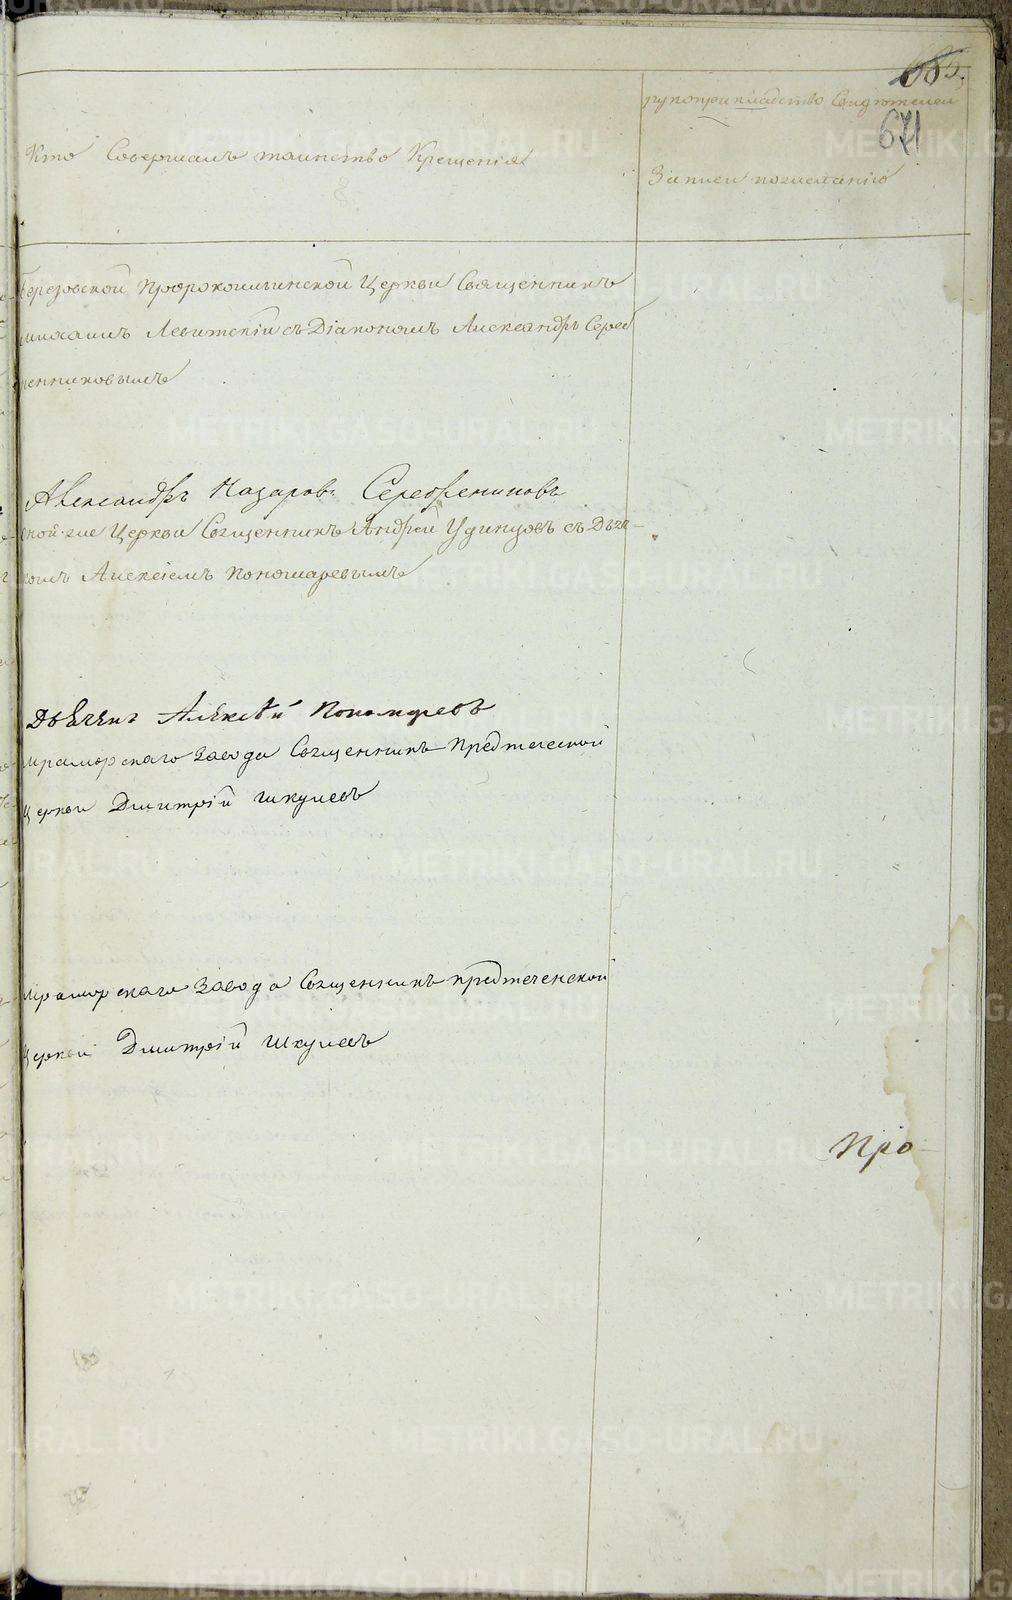 685.
рукоприкладство Свидетелей
671
Кто Совершалъ таинство Крещенія
Записи пожеланію
Березовской Пророкоильинской Церкви Священникъ
михаилъ Левитскій съ Діакономъ Александръ Сереб
ренниковымъ
Александръ Назаровъ Серебрениковъ
Оной-же Церкви Священникъ Андрей Удинцовъ съ Дьяч-
комъ Алексіемъ Пономаревымъ
Дьячекъ Алексѣй Пономаревъ
Мраморскаго Завода Священникъ Предтеческой
Церкви Дмитрій Шкулевъ
Мраморскаго Завода Священникъ предтеченской
Церкви Дмитрій Шкулевъ
Про-
METRIKI.GASO-URAL.RU